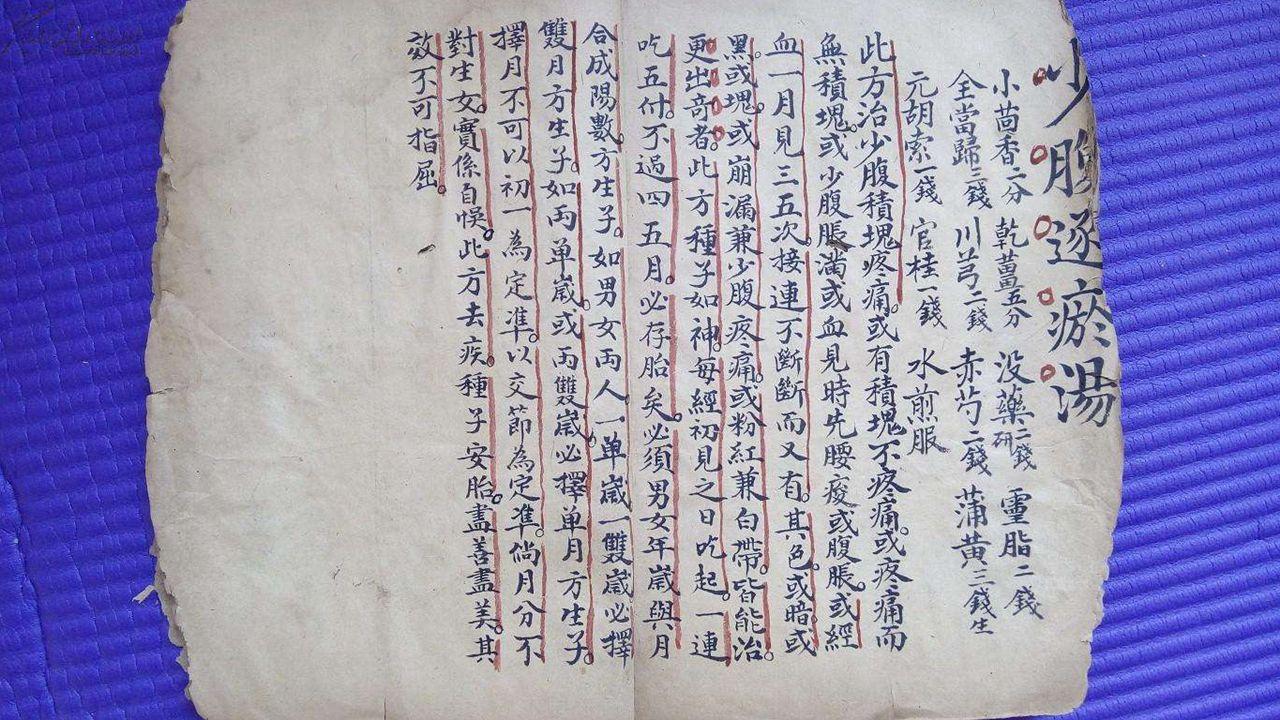 少腹逐瘀湯
小茴香二分 乾薑五分 没藥二錢研 靈脂二錢
全當歸三錢 川芎二錢 赤芍二錢 蒲黃三錢生
元胡索一錢 官桂一錢 水煎服
此方治少腹積塊疼痛。或有積塊不疼痛。或疼痛而
無積塊。或少腹脹滿或血見時先腰痠或腹脹。或經
血一月見三五次。接連不斷斷而又有。其色。或暗。或
黑。或塊。或崩漏兼少腹疼痛。或粉紅兼白帶。皆能治。
更出奇者。此方種子如神。每經初見之日吃起。一連
吃五付。不過四五月。必存胎矣。必須男女年歲與月
合成陽數。方生子。如男女兩人一單歲一雙歲必擇
雙月方生子。如兩單歲。或兩雙歲。必擇單月方生子。
擇月不可以初一為定準。以交節為定準。倘月分不
對生女。實係自悞。此方去疾。種子安胎。盡善盡美。其
效不可指屈。